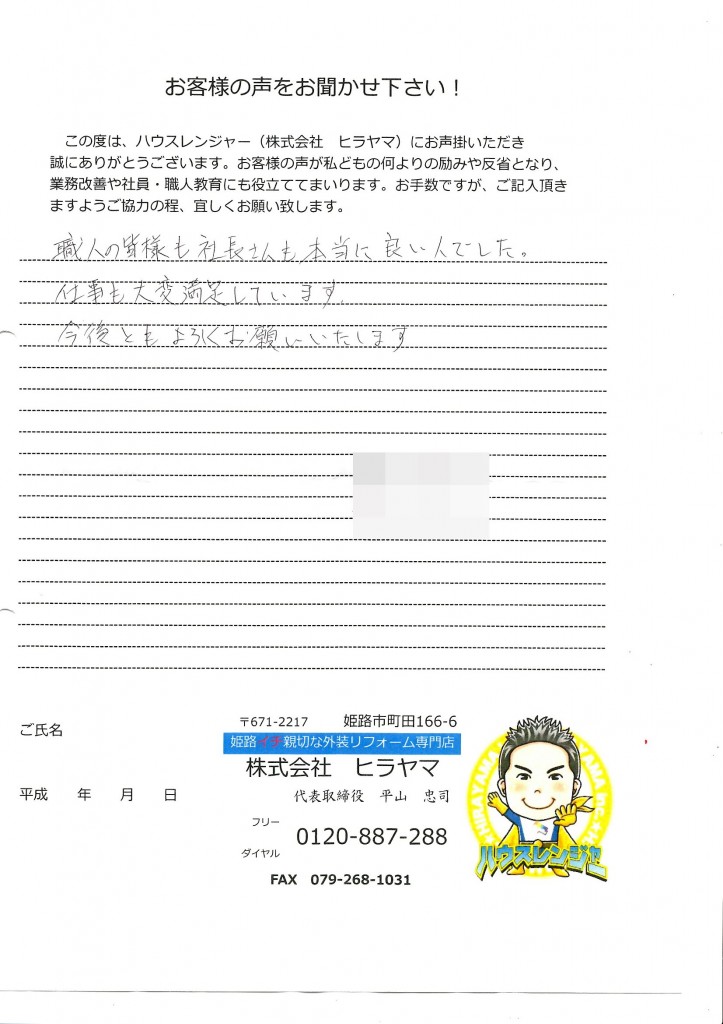 お客様の声をお聞かせ下さい！
この度は、ハウスレンジャー（株式会社　ヒラヤマ）にお声掛いただき
誠にありがとうございます。お客様の声が私どもの何よりの励みや反省となり、
業務改善や社員・職人教育にも役立ててまいります。お手数ですが、ご記入頂き
ますようご協力の程、宜しくお願い致します。
職人の皆様も社長さんも本当に良い人でした。
仕事も大変満足しています。
今後ともよろしくお願いいたします
ご氏名
〒671-2217　姫路市町田166-6
姫路イチ親切な外装リフォーム専門店
株式会社　ヒラヤマ
平成　年　月　日
代表取締役　平山　忠司
フリー
ダイヤル
0120-887-288
FAX　079-268-1031
ハウスレンジャー